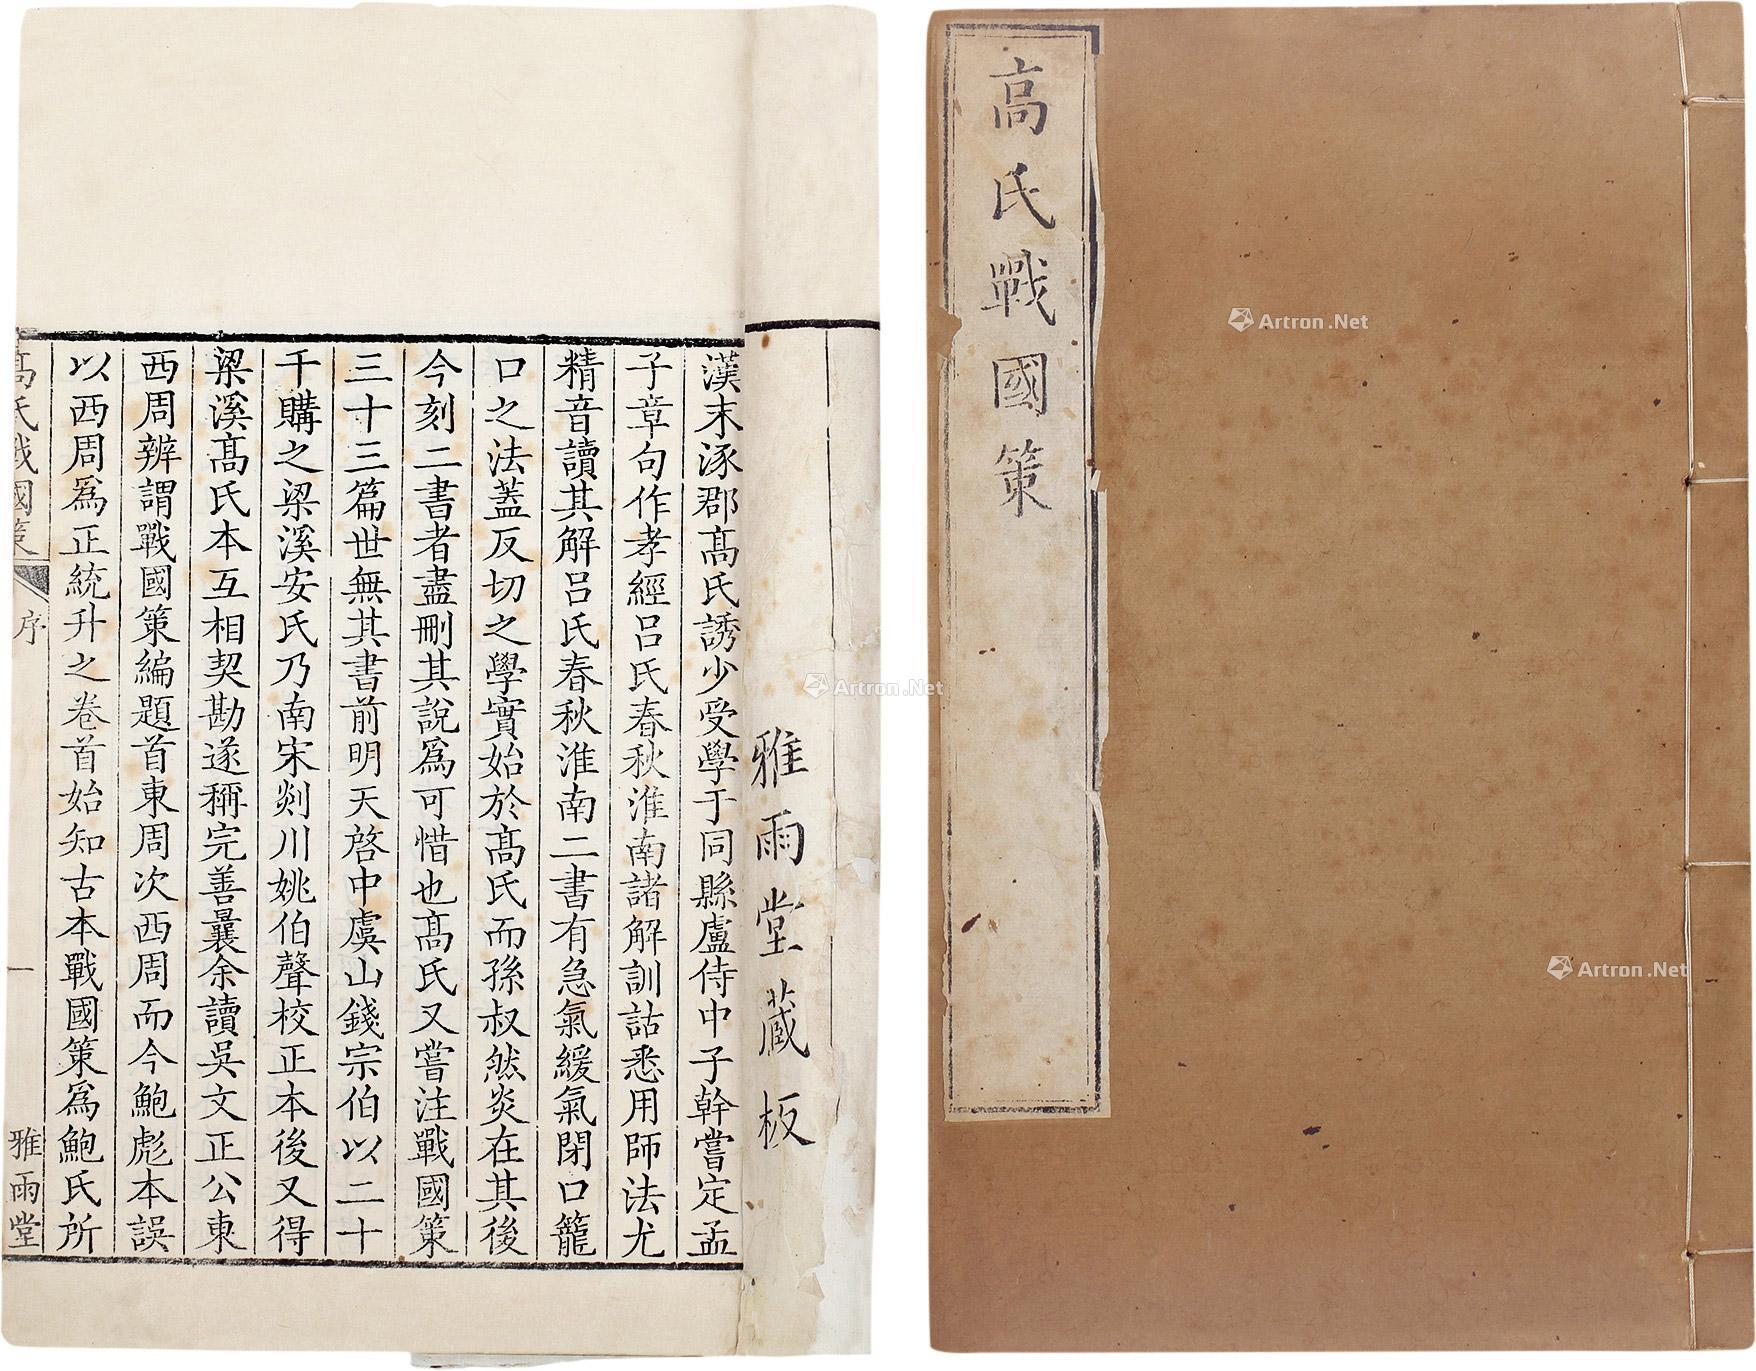 高氏戰國策
雅雨堂藏板
漢末涿郡髙氏誘少受學于同縣盧侍中子幹嘗定孟
子章句作孝經吕氏春秋淮南諸解訓詁悉用師法尤
精音讀其解吕氏春秋淮南二書有急氣緩氣閉口籠
口之法蓋反切之學實始於髙氏而孫叔然炎在其後
今刻二書者盡刪其說爲可惜也髙氏又嘗注戰國策
三十三篇世無其書前明天啓中虞山錢宗伯以二十
千購之梁溪安氏乃南宋剡川姚伯聲校正本後又得
梁溪髙氏本互相契勘遂稱完善曩余讀吳文正公東
西周辨謂戰國策編題首東周次西周而今鮑彪本誤
以西周爲正統升之卷首始知古本戰國策爲鮑氏所
高氏戰國策
序
一
雅雨堂
Artron.Net
Artron.Net
Artron.Net